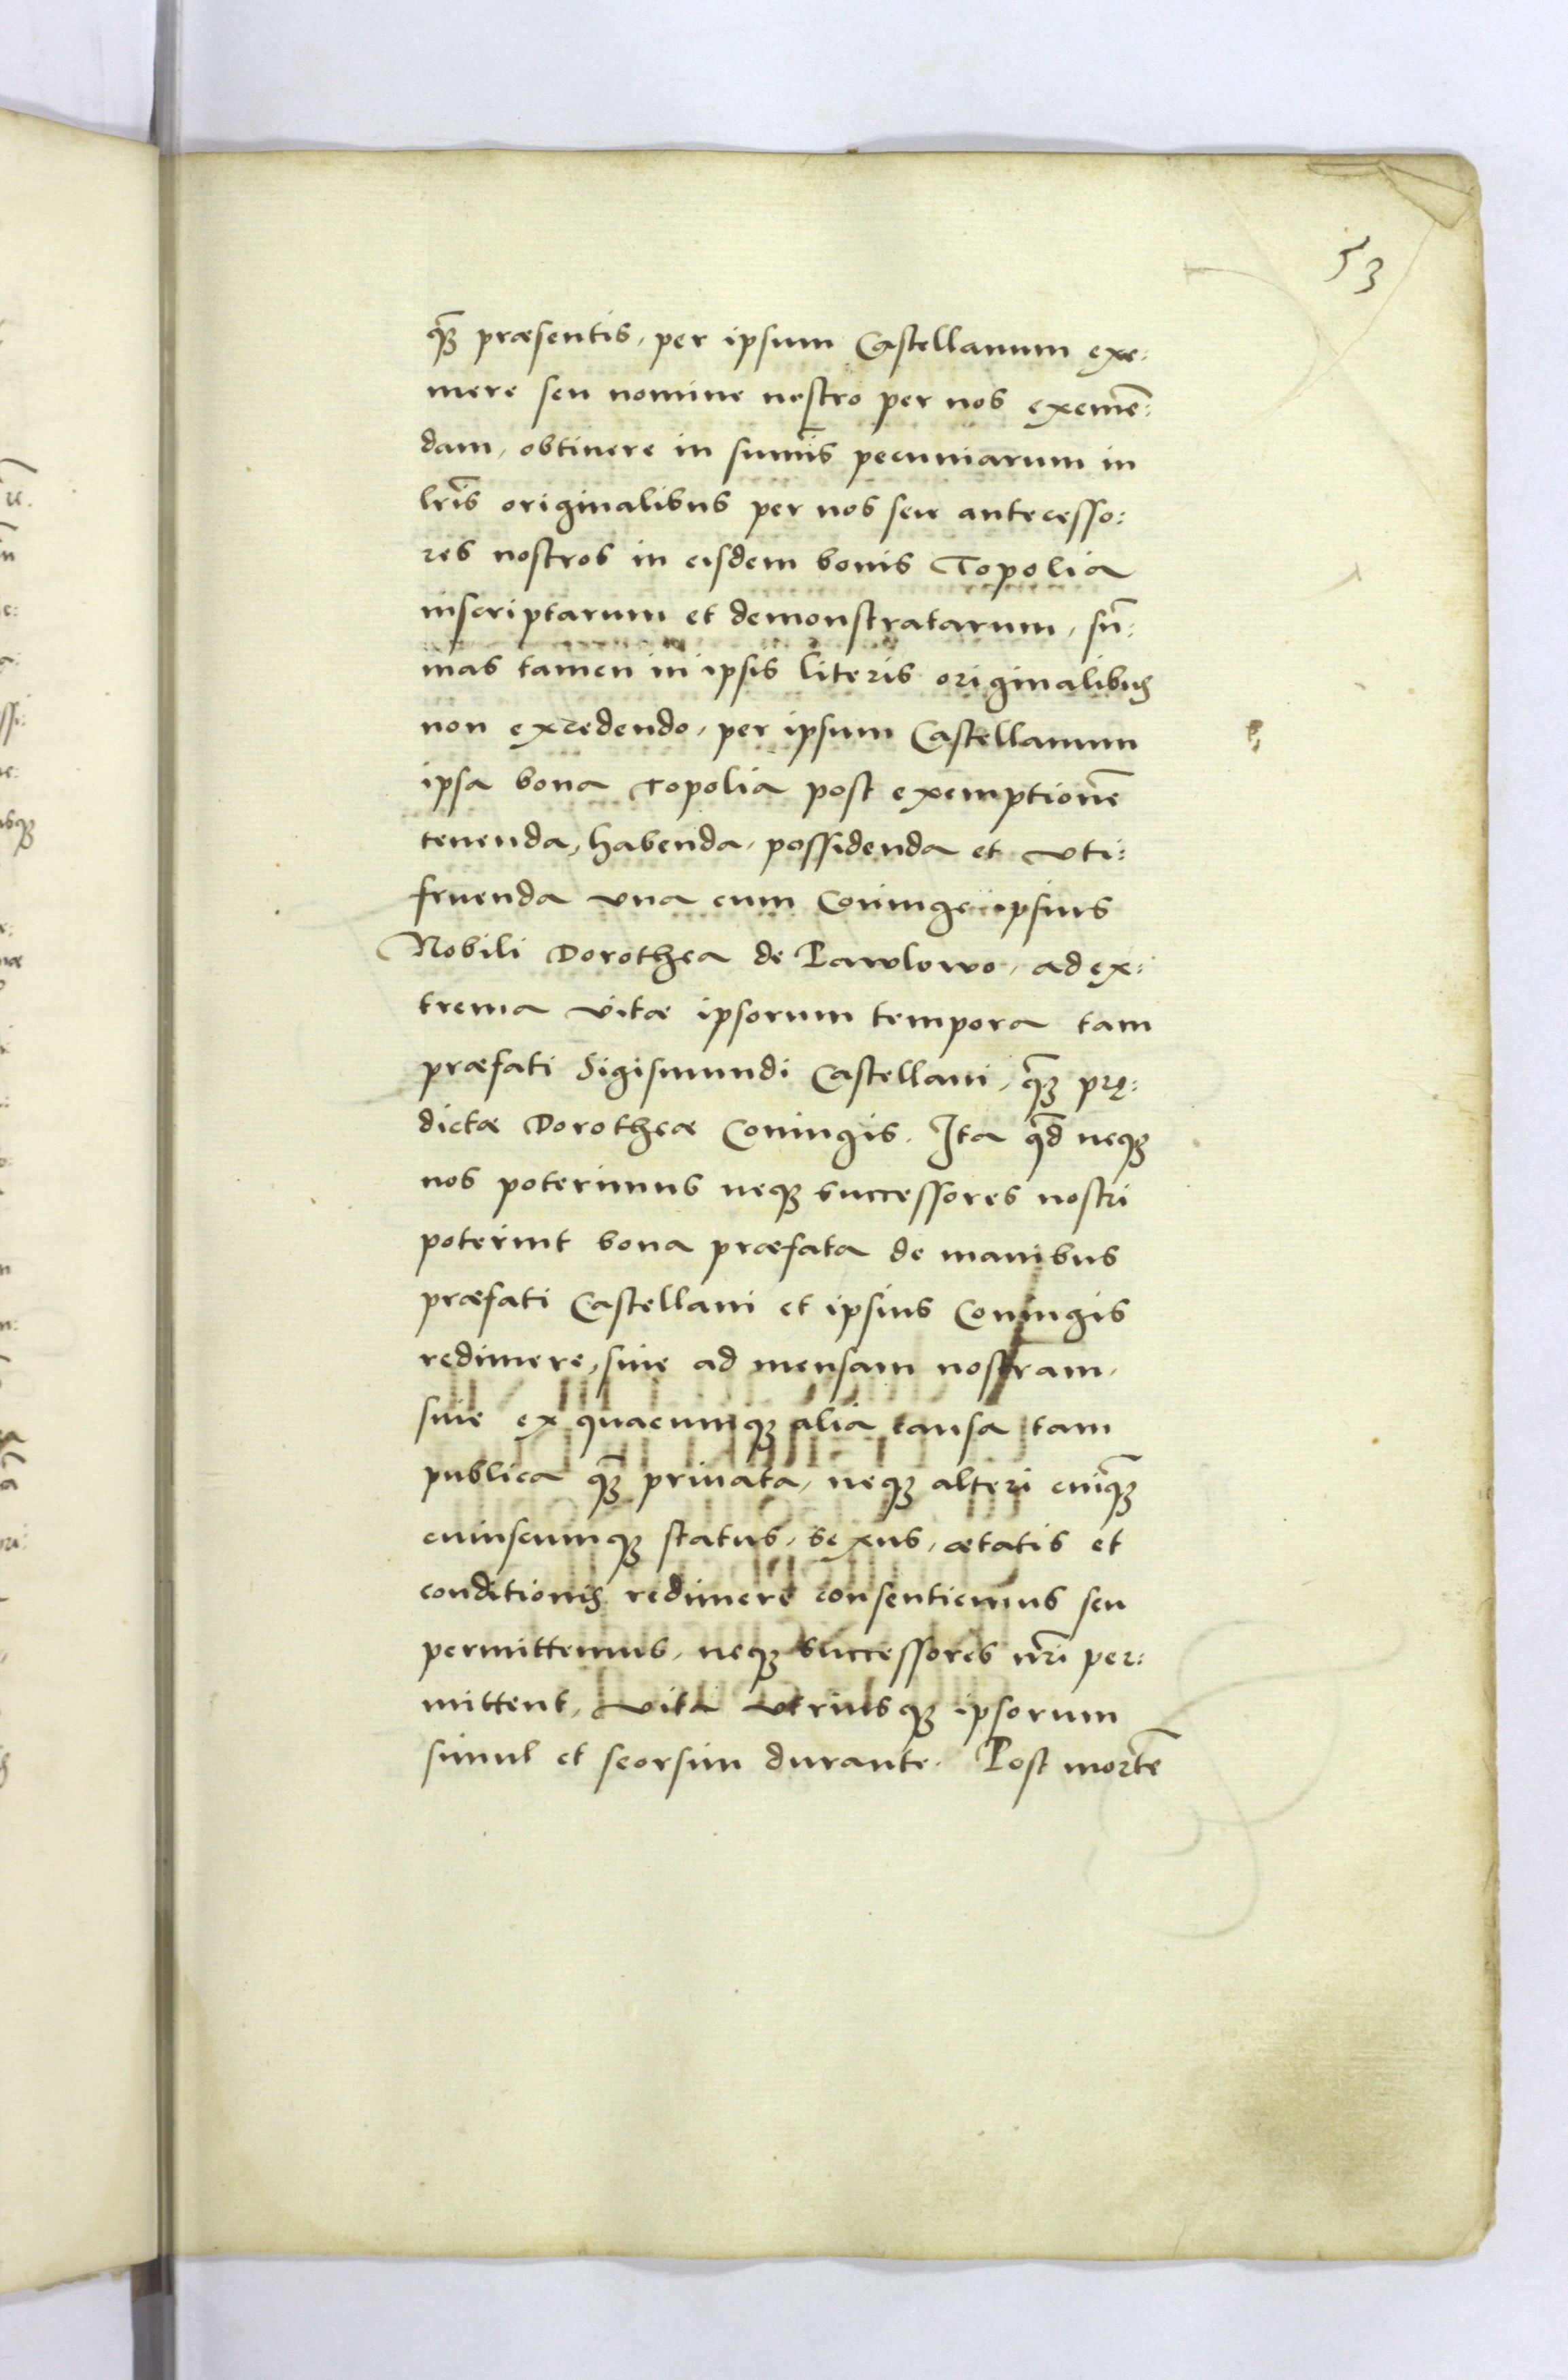 53
qua̅ꝫ præsentis, per ipsum Castellanum exe:
mere seu nomine nostro per nos exeme̅:
dam, obtinere in summis pecuniarum in
lr̅is originalibus per nos seu antecesso:
res nostros in eisdem bonis Topolia
inscriptarum et demonstratarum, su̅:
mas tamen in ipsis literis originalibus
non excedendo, per ipsum Castellanum
ipsa bona Topolia post exemptione̅
tenenda, habenda, possidenda et vti:
fruenda vna cum Coniuge ipsius
Nobili Dorothea de Pawlowo, ad ex:
trema vitæ ipsorum tempora tam
præfati Sigismundi Castellani, qua̅ꝫ prę:
dictæ Dorotheæ Coniugis. Ita qd̅ neqꝫ
nos poterimus neqꝫ successores nostri
poterint bona præfata de manibus
præfati Castellani et ipsius Coniugis
redimere, siue ad mensam nostram,
siue ex quacumqꝫ alia causa tam
publica qua̅ꝫ priuata, neqꝫ alteri cuiqua̅ꝫ
cuiuscumqꝫ status, sexus, ætatis et
conditionis redimere consentiemus seu
permittemus, neqꝫ successores nr̅i per:
mittent, vita vtriusqꝫ ipsorum
simul et seorsim durante. Post morte̅